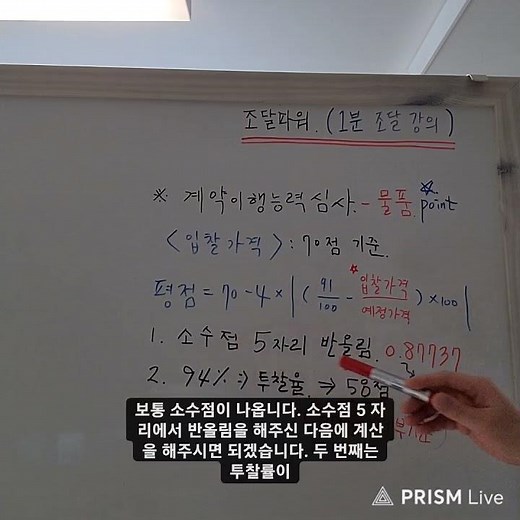 조달파워. (1분 조달 강의)
※ 계약이행능력심사. - 물품. point
<입찰가격> : 70점 기준.
평점 = 70 - 4 × | ( 91/100 - 입찰가격/예정가격 ) × 100 |
1. 소수점 5자리 반올림. 0.87737
2. 94% ⇒ 투찰율. ⇒ 58점
보통 소수점이 나옵니다. 소수점 5 자
리에서 반올림을 해주신 다음에 계산
을 해주시면 되겠습니다. 두 번째는
투찰률이
PRISM Live